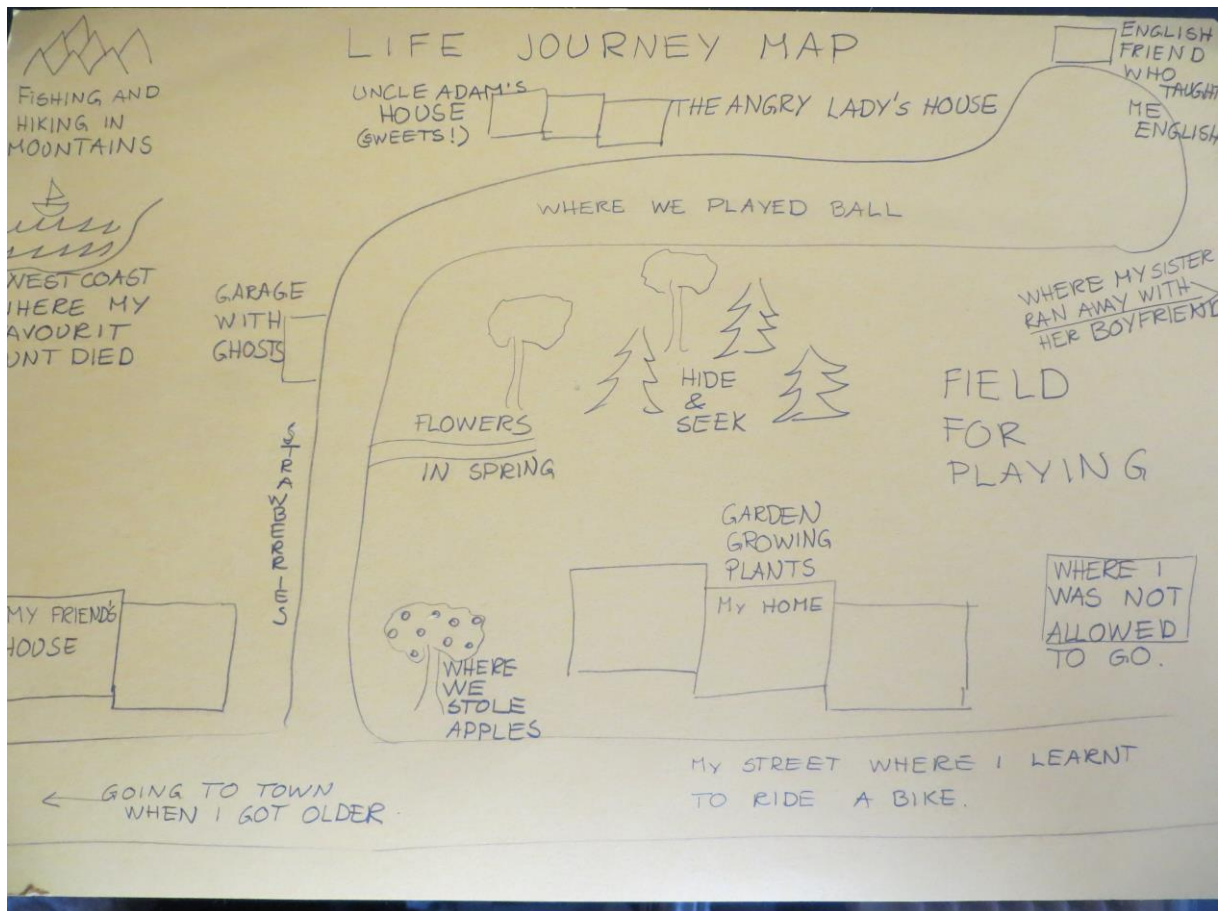 LIFE JOURNEY MAP
FISHING AND
HIKING IN
MOUNTAINS
UNCLE ADAM'S
HOUSE
(SWEETS!)
THE ANGRY LADY'S HOUSE
ENGLISH
FRIEND
WHO
TAUGHT
ME
ENGLISH
WHERE WE PLAYED BALL
WEST COAST
HERE MY
AVOURIT
UNT DIED
GARAGE
WITH
GHOSTS
WHERE MY SISTER
RAN AWAY WITH
HER BOYFRIEND
HIDE
&
SEEK
FIELD
FOR
PLAYING
FLOWERS
IN SPRING
STRAWBERRIES
GARDEN
GROWING
PLANTS
MY HOME
WHERE I
WAS NOT
ALLOWED
TO GO.
MY FRIEND'S
HOUSE
WHERE
WE
STOLE
APPLES
MY STREET WHERE I LEARNT
TO RIDE A BIKE.
GOING TO TOWN
WHEN I GOT OLDER.